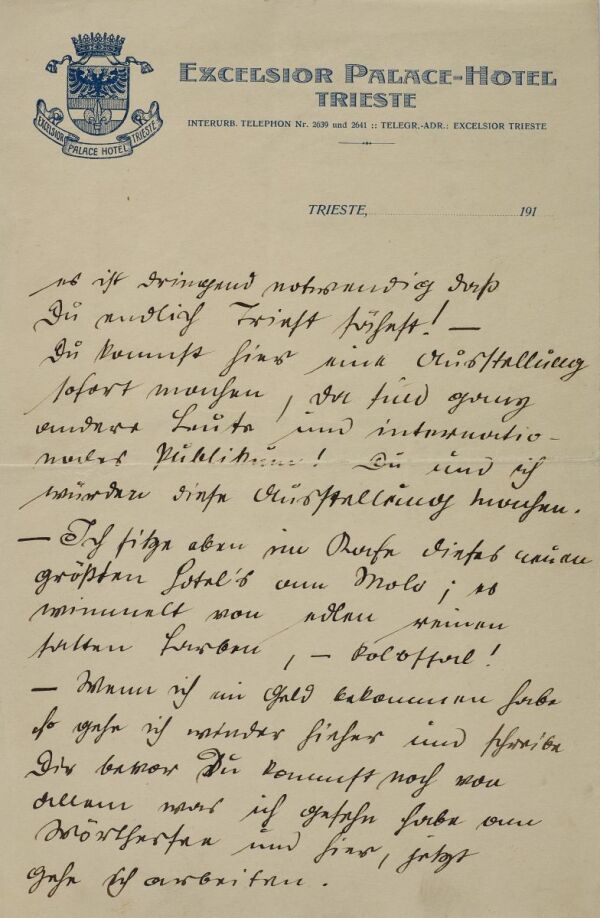 EXCELSIOR PALACE HOTEL TRIESTE
EXCELSIOR PALACE-HOTEL
TRIESTE
INTERURB. TELEPHON Nr. 2639 und 2641 :: TELEGR.-ADR.: EXCELSIOR TRIESTE
TRIESTE, 191
es ist dringend notwendig daß
Du endlich Triest sähest! —
Du kannst hier eine Ausstellung
sofort machen, da sind ganz
andere Leute und internatio-
nales Publikum! Du und ich
würden diese Ausstellung machen.
— Ich sitze oben im Kafe dieses neuen
größten Hotel's am Molo; es
wimmelt von edlen reinen
satten Farben, — kolossal!
— Wenn ich Geld bekommen habe
so gehe ich wieder hieher und schreibe
Dir bevor Du kommst noch von
allem was ich gesehn habe am
Wörthersee und hier, jetzt
gehe ich arbeiten.